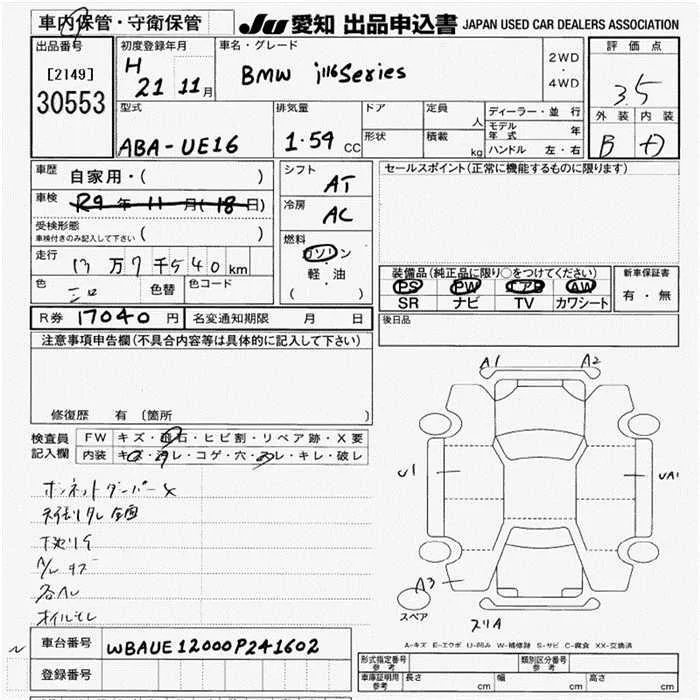 車内保管・守衛保管
JU 愛知 出品申込書 JAPAN USED CAR DEALERS ASSOCIATION
出品番号
[2149]
30553
初度登録年月
H 21 11月
車名・グレード
BMW i116 Series
2WD
・
4WD
評価点
3.5
外装 内装
B
型式
ABA-UE16
排気量
1.59 CC
ドア
形状
定員 人
積載 kg
ディーラー・並行
モデル年式 年
ハンドル 左・右
車歴
自家用・( )
車検
R9年11月(18日)
受検形態
車検付きのみ記入して下さい ( )
走行
13万7千540km
色
シロ
色替
色コード
シフト
AT
冷房
AC
燃料
ガソリン
軽・油
( )
セールスポイント(正常に機能するものに限ります)
装備品(純正品に限り○をつけてください)
PS PW エアB AW
SR ナビ TV カワシート
新車保証書
有・無
R券 17040円
名変通知期限 月 日
後日品
注意事項申告欄(不具合内容等は具体的に記入して下さい)
修復歴 有 〔箇所 〕
検査員
記入欄
FW キズ・飛石・ヒビ割・リペア跡・X要
内装 キズ・汚レ・コゲ・穴・スレ・キレ・破レ
ボンネットダンパー✕
下廻りサ
A/W キズ
オイルモレ
A1 A2
U1 UA1
A3
スペア
スリA
A-キズ E-エクボ U-凹み W-補修跡 S-サビ C-腐食 XX-交換済
車台番号
WBAUE12000P241602
登録番号
形式指定番号
参考
類別区分番号
参考
車庫証明用
参考
長さ cm
幅 cm
高さ cm